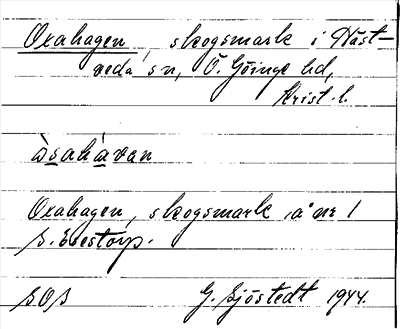 Oxahagen, skogsmark i Häst-
veda sn, Ö. Göinge hd,
Krist. l.
òsahávan
Oxahagen, skogsmark å nr 1
S. Esestorp.
SOS G. Sjöstedt 1944.